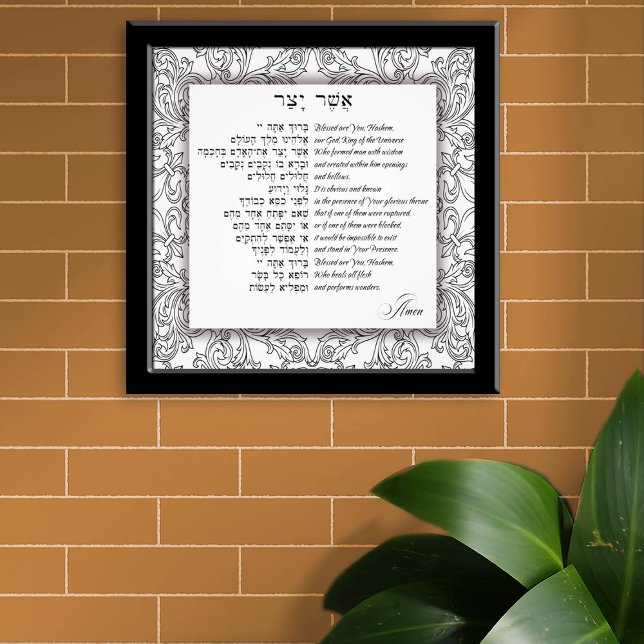 אֲשֶׁר יָצַר
בָּרוּךְ אַתָּה יי Blessed are You, Hashem,
אֱלֹהֵינוּ מֶלֶךְ הָעוֹלָם our God, King of the Universe
אֲשֶׁר יָצַר אֶת־הָאָדָם בְּחָכְמָה Who formed man with wisdom
וּבָרָא בוֹ נְקָבִים נְקָבִים and created within him openings
חֲלוּלִים חֲלוּלִים and hollows.
גָּלוּי וְיָדוּעַ It is obvious and known
לִפְנֵי כִסֵּא כְבוֹדֶךָ in the presence of Your glorious throne
שֶׁאִם יִפָּתֵחַ אֶחָד מֵהֶם that if one of them were ruptured,
אוֹ יִסָּתֵם אֶחָד מֵהֶם or if one of them were blocked,
אִי אֶפְשַׁר לְהִתְקַיֵּם it would be impossible to exist
וְלַעֲמוֹד לְפָנֶיךָ and stand in Your Presence.
בָּרוּךְ אַתָּה יי Blessed are You, Hashem,
רוֹפֵא כָל בָּשָׂר Who heals all flesh
וּמַפְלִיא לַעֲשׂוֹת and performs wonders.
Amen